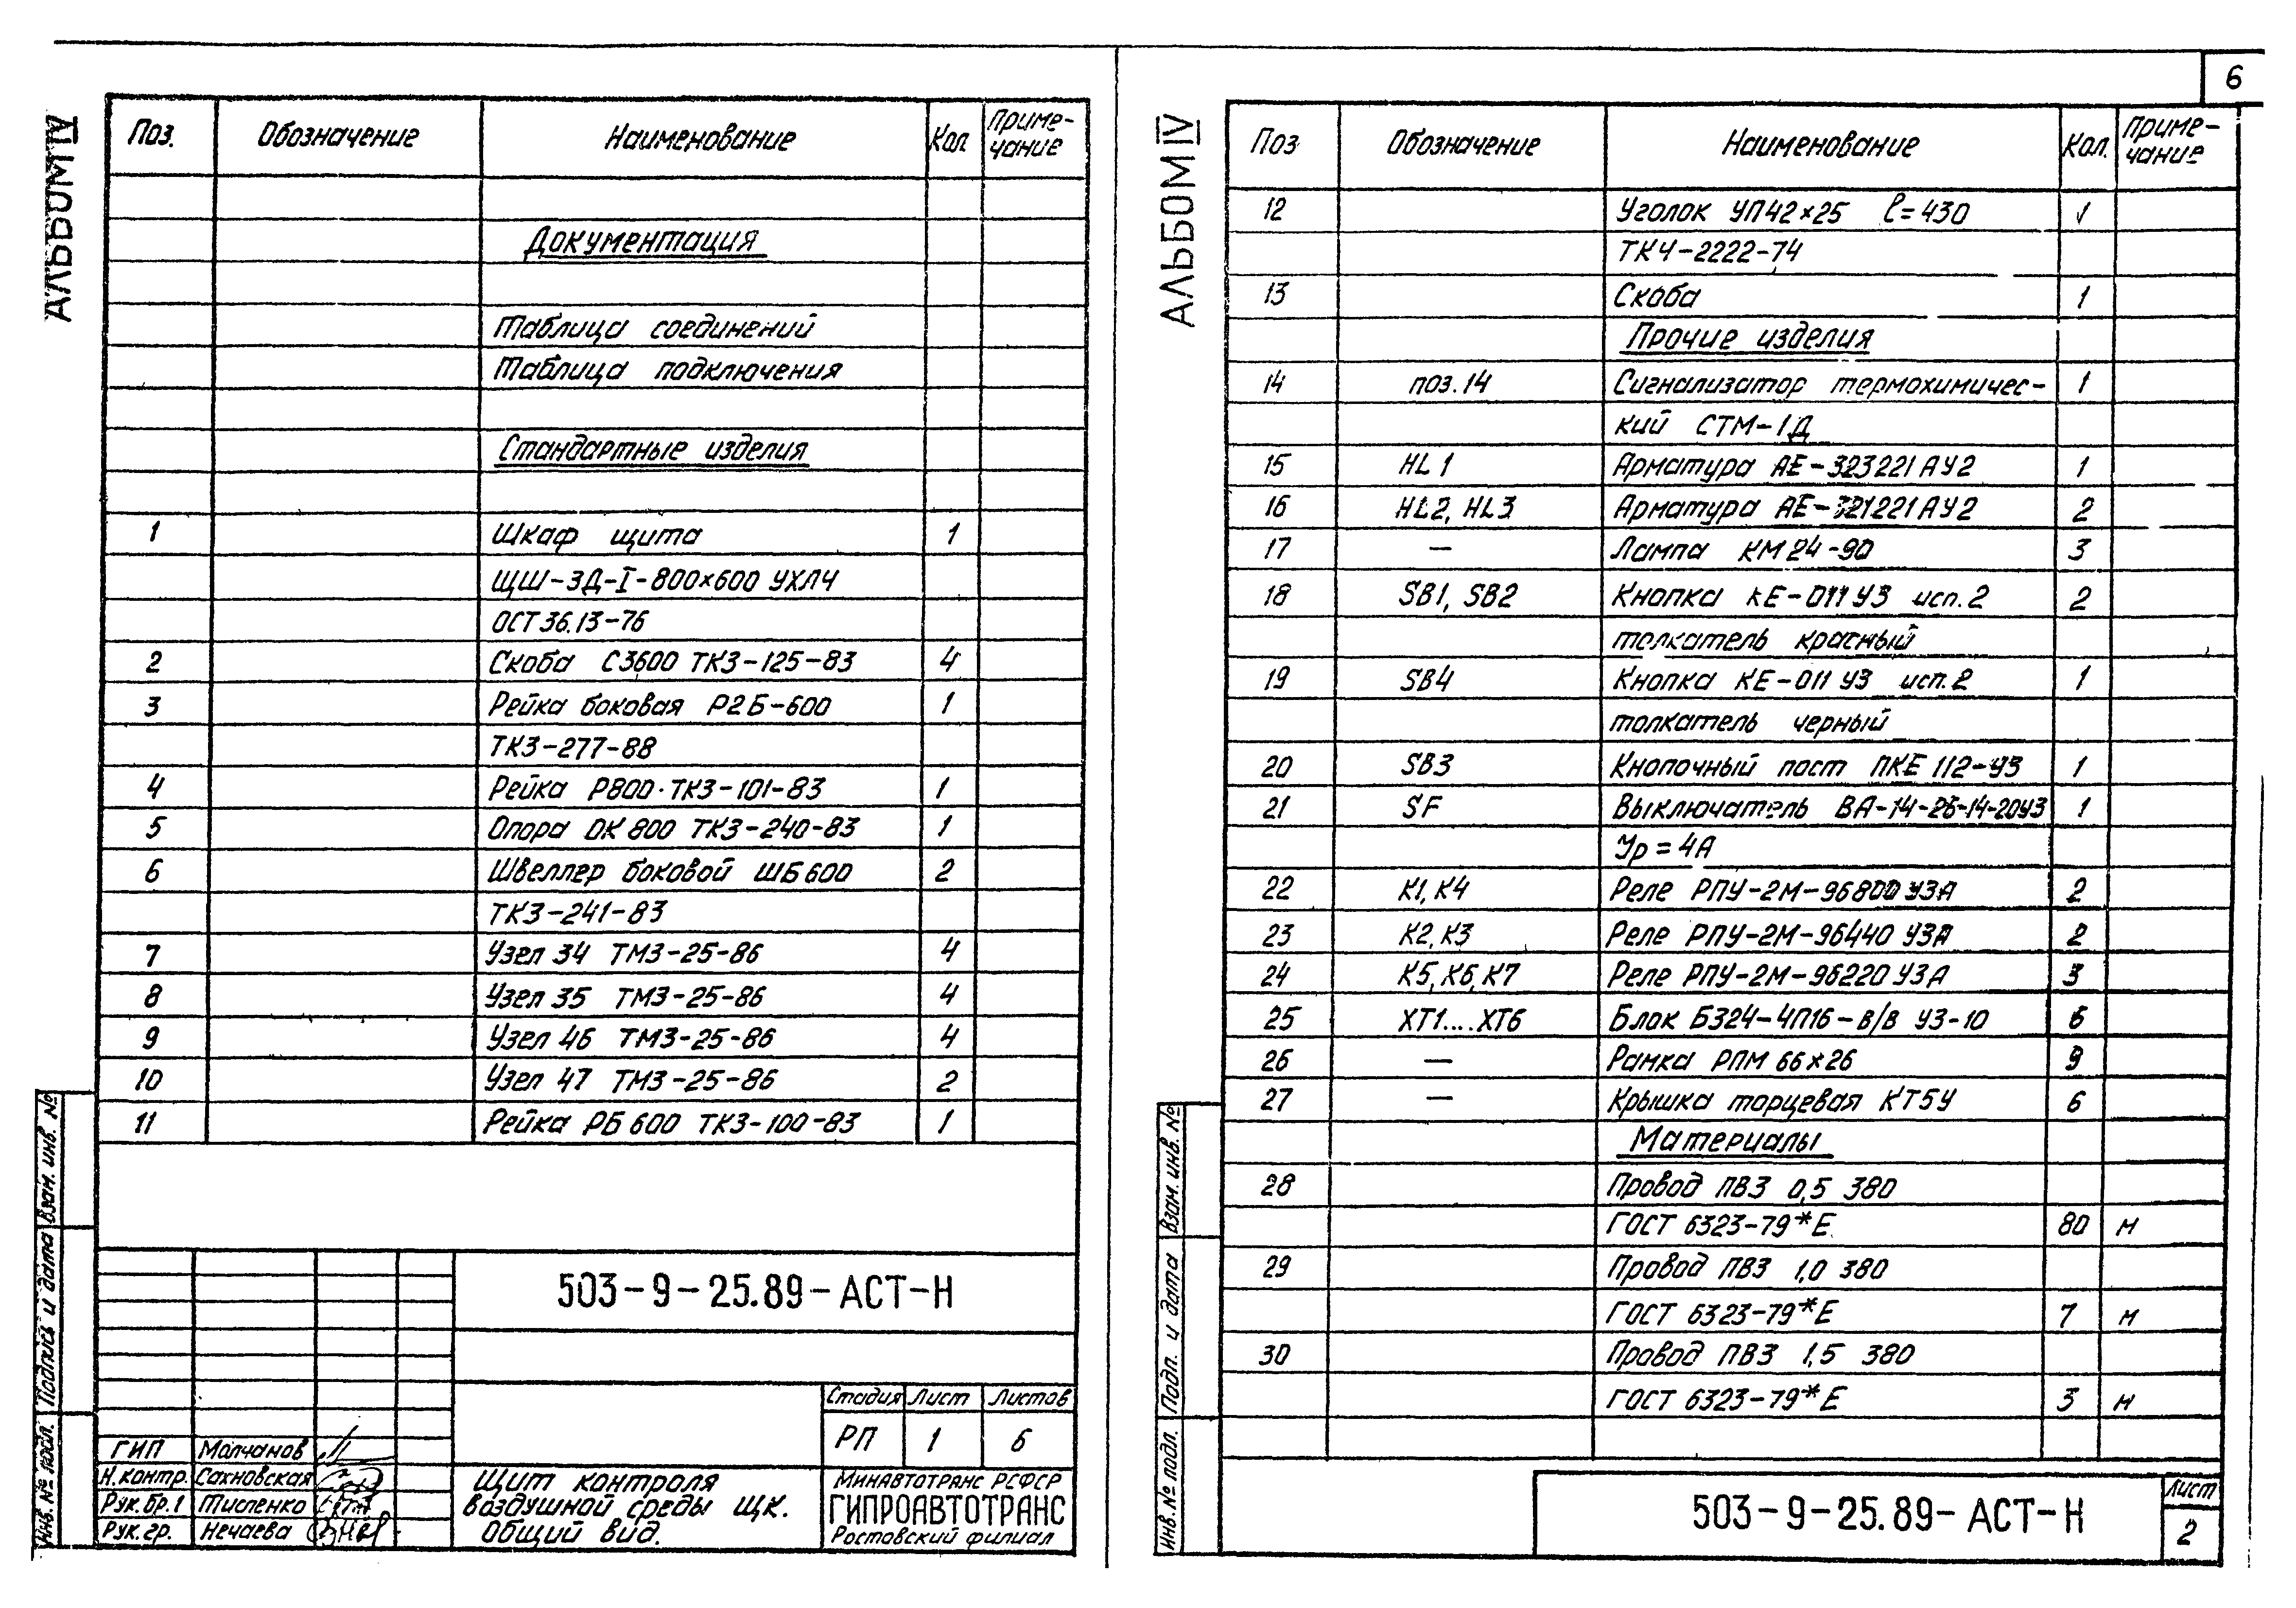 6
АЛЬБОМ IV
Поз. Обозначение Наименование Кол Приме-
чание
Документация
Таблица соединений
Таблица подключения
Стандартные изделия
1 Шкаф щита 1
ЩШ-ЗД-I-800×600 УХЛ4
ОСТ 36.13-76
2 Скоба С3600 ТК3-125-83 4
3 Рейка боковая Р2Б-600 1
ТК3-277-88
4 Рейка Р800·ТК3-101-83 1
5 Опора ОК 800 ТК3-240-83 1
6 Швеллер боковой ШБ600 2
ТК3-241-83
7 Узел 34 ТМ3-25-86 4
8 Узел 35 ТМ3-25-86 4
9 Узел 46 ТМ3-25-86 4
10 Узел 47 ТМ3-25-86 2
11 Рейка РБ 600 ТК3-100-83 1
503-9-25.89-АСТ-Н
Стадия Лист Листов
РП 1 6
ГИП Молчанов
Н.контр. Сахновская
Рук.бр.1 Тисленко
Рук.гр. Нечаева
Щит контроля
воздушной среды ЩК.
Общий вид.
Минавтотранс РСФСР
ГИПРОАВТОТРАНС
Ростовский филиал
Инв.№ подл. Подпись и дата Взам. инв. №
АЛЬБОМ IV
Поз Обозначение Наименование Кол. Приме-
чание
12 Уголок УП42×25 ℓ=430 1
ТК4-2222-74
13 Скоба 1
Прочие изделия
14 поз.14 Сигнализатор термохимичес- 1
кий СТМ-1Д
15 HL1 Арматура АЕ-323221АУ2 1
16 HL2, HL3 Арматура АЕ-321221АУ2 2
17 — Лампа КМ24-90 3
18 SB1, SB2 Кнопка КЕ-011У3 исп.2 2
толкатель красный
19 SB4 Кнопка КЕ-011 У3 исп.2 1
толкатель черный
20 SB3 Кнопочный пост ПКЕ 112-У3 1
21 SF Выключатель ВА-14-26-14-20У3 1
Ур = 4А
22 К1, К4 Реле РПУ-2М-96800 У3А 2
23 К2, К3 Реле РПУ-2М-96440 У3А 2
24 К5, К6, К7 Реле РПУ-2М-96220 У3А 3
25 ХТ1....ХТ6 Блок Б324-4П16-В/В У3-10 6
26 — Рамка РПМ 66×26 9
27 — Крышка торцевая КТ5У 6
Материалы
28 Провод ПВ3 0,5 380
ГОСТ 6323-79*Е 80 м
29 Провод ПВ3 1,0 380
ГОСТ 6323-79*Е 7 м
30 Провод ПВ3 1,5 380
ГОСТ 6323-79*Е 3 м
503-9-25.89-АСТ-Н
Лист
2
Инв.№ подл. Подп. и дата Взам. инв. №